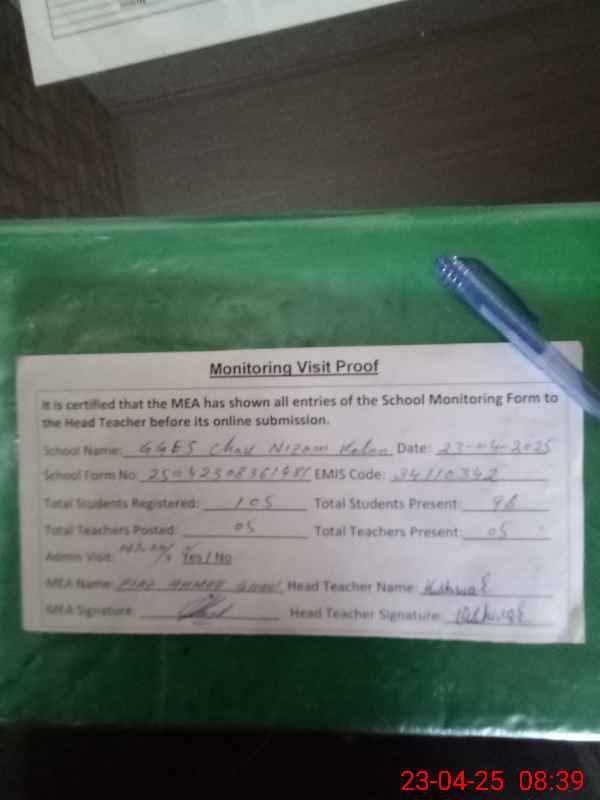 Monitoring Visit Proof
It is certified that the MEA has shown all entries of the School Monitoring Form to
the Head Teacher before its online submission.
School Name: GGES Chak Nizam Kalan Date: 23-04-2025
School Form No: EMIS Code: 34110342
Total Students Registered: 105 Total Students Present:
Total Teachers Posted: 05 Total Teachers Present: 05
Admin Visit: Yes / No
MEA Name: AHMED Head Teacher Name:
MEA Signature: Head Teacher Signature:
23-04-25 08:39